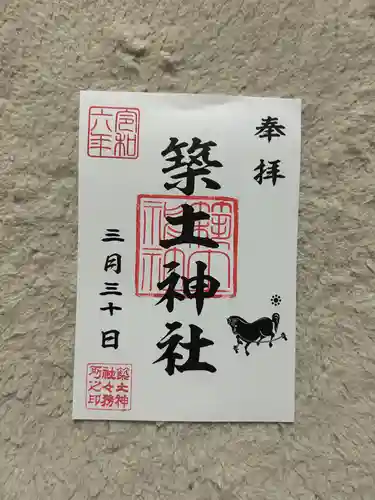 奉拝
築土神社
三月三十日
令和
六年
築土
神社
築土神
社々務
所之印